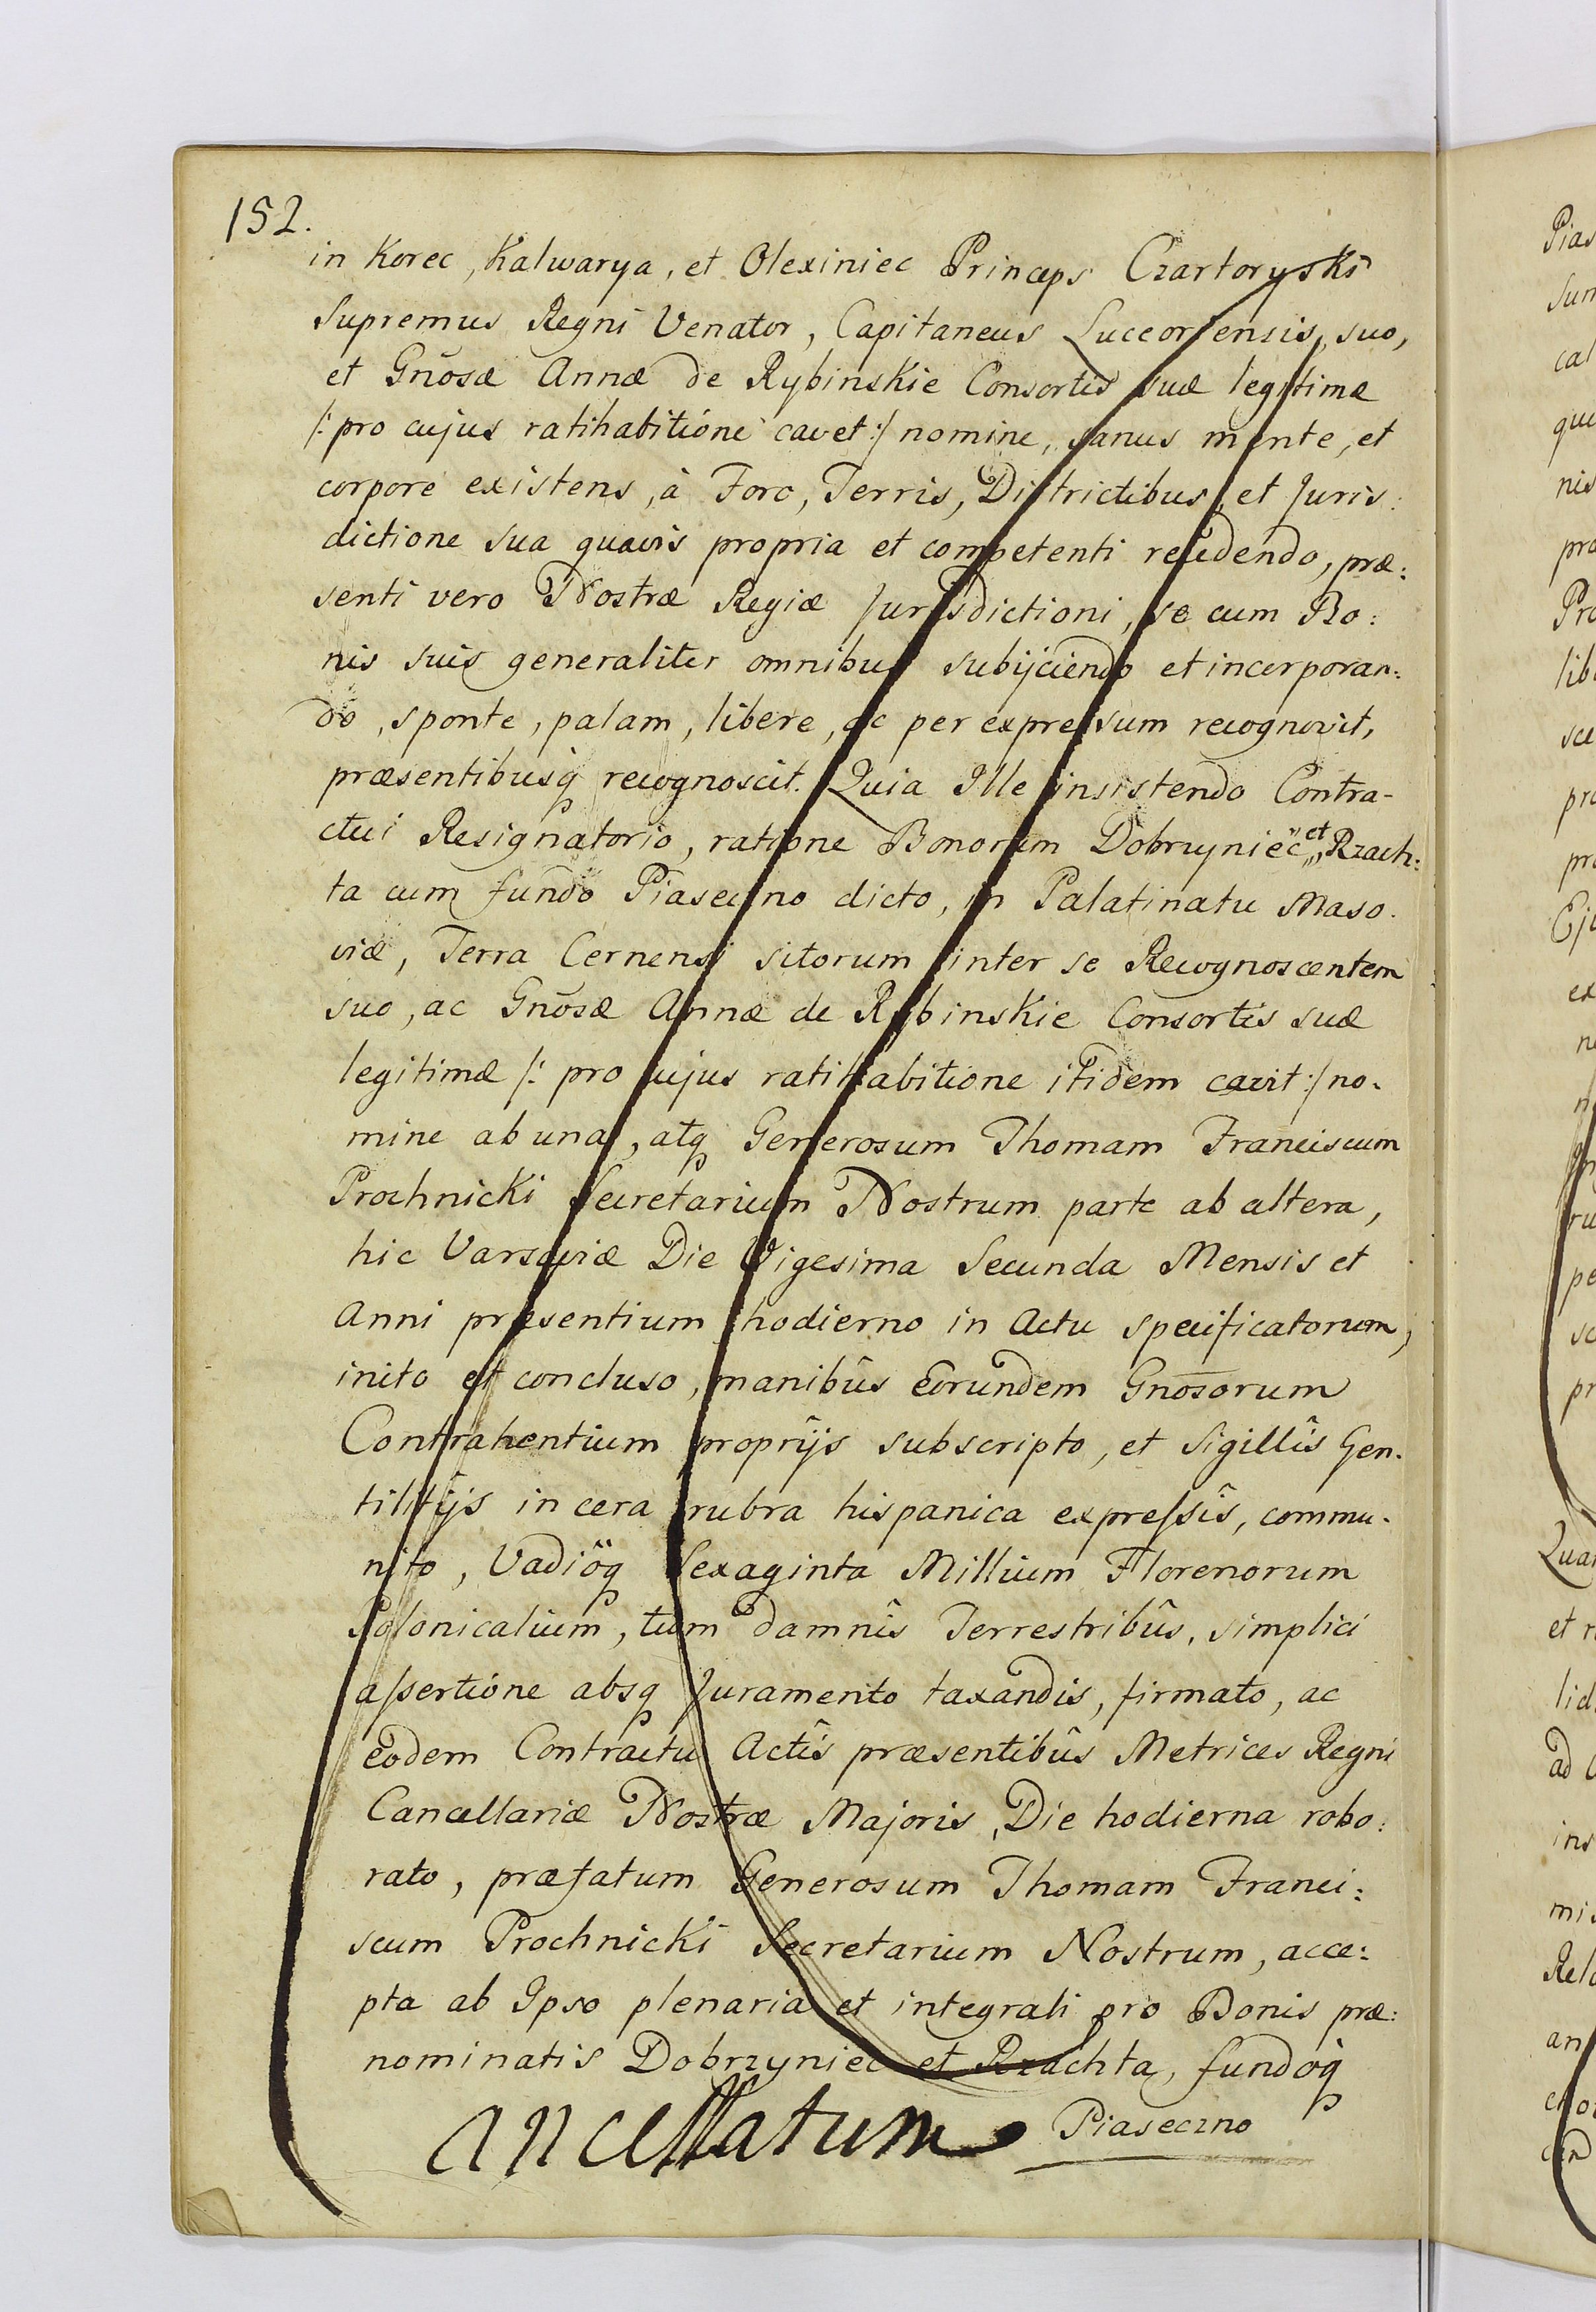 152.
in Korec, Kalwarya, et Olexiniec Princeps Czartoryski
Supremus Regni Venator, Capitaneus Luceoriensis, suo,
et Gnõsæ Annæ de Rybinskie Consortis suæ legitimæ
/: pro cujus ratihabitióne cavet :/ nomine, sanus mente, et
corpore existens, à Foro, Terris, Districtibus, et Juris:
dictione sua quavis propria et competenti recedendo, præ:
senti vero Nostræ Regiæ Jurisdictioni, se cum Bo:
nis suis generaliter omnibus subijciendo et incorporan:
do, sponte, palam, libere, ac per expressum recognovit,
præsentibusq recognoscit. Quia Ille insistendo Contra-
ctui Resignatorio, ratione Bonorum Dobrzyniec et Rzach:
ta cum fundo Piaseczno dicto, in Palatinatu Maso.
viæ, Terra Cernensi sitorum inter se Recognoscentem
suo, ac Gnõsæ Annæ de Rybinskie Consortis suæ
legitimæ /: pro cujus ratihabitione itidem cavit :/ no.
mine ab una, atq Generosum Thomam Franciscum
Prochnicki Secretarium Nostrum parte ab altera,
hic Varsaviæ Die Vigesima Secunda Mensis et
Anni præsentium hodierno in Actu specificatorum,
inito et concluso, manibûs eorundem Gnõsorum
Contrahentium proprijs subscripto, et Sigillîs Gen.
tilitijs in cera rubra hispanica expressîs, commu.
nito, Vadiöq Sexaginta Millium Florenorum
Polonicalium, tum damnîs Terrestribûs, simplici
assertióne absq Juramento taxandis, firmato, ac
eodem Contractu Actîs præsentibûs Metrices Regni
Cancellariæ Nostræ Majoris, Die hodierna robo:
rato, præfatum Generosum Thomam Franci:
scum Prochnicki Secretarium Nostrum, acce:
pta ab Ipso plenaria et integrali pro Bonis præ:
nominatis Dobrzyniec et Rzachta, fundoq
Cancellatum Piaseczno